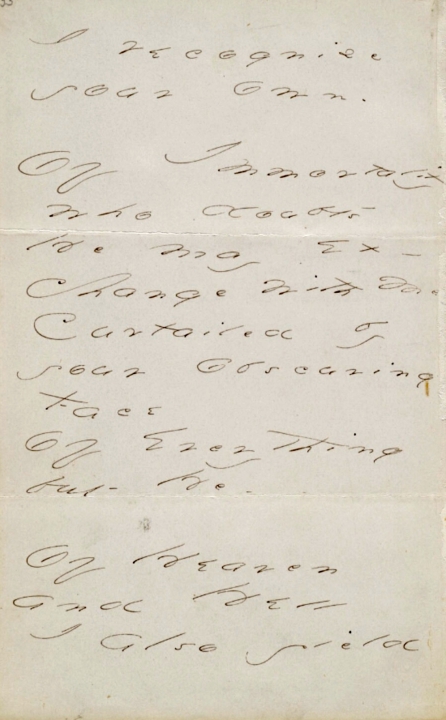 33
I recognize
your Own.
Of Immortality
who doubts
He may Ex-
change with me
Curtailed by
your Obscuring
Face
Of Everything
but He.
Of Heaven
and Hell
I also yield